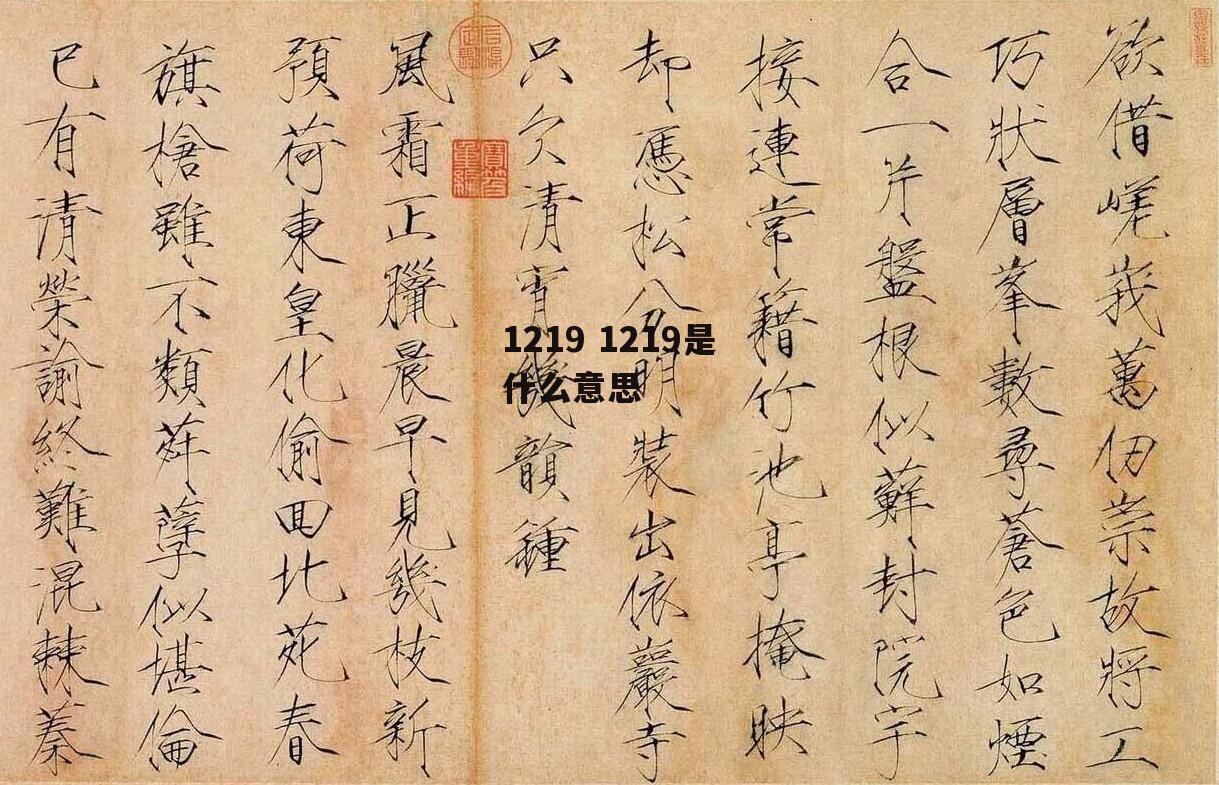 欲借嵯峩萬仞崇故將工
巧狀層峯數尋蒼色如煙
合一片盤根似蘚封院宇
接連常籍竹池亭掩映
却憑松分明裝出依巖寺
只欠清宵幾韻鍾
風霜正臘晨早見幾枝新
預荷東皇化偷囬北苑春
旗槍雖不類荈孽似堪倫
已有清榮諭終難混棘蓁
1219 1219是
什么意思